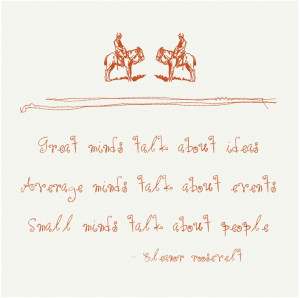 Great minds talk about ideas
Average minds talk about events
Small minds talk about people
- Eleanor roosevelt